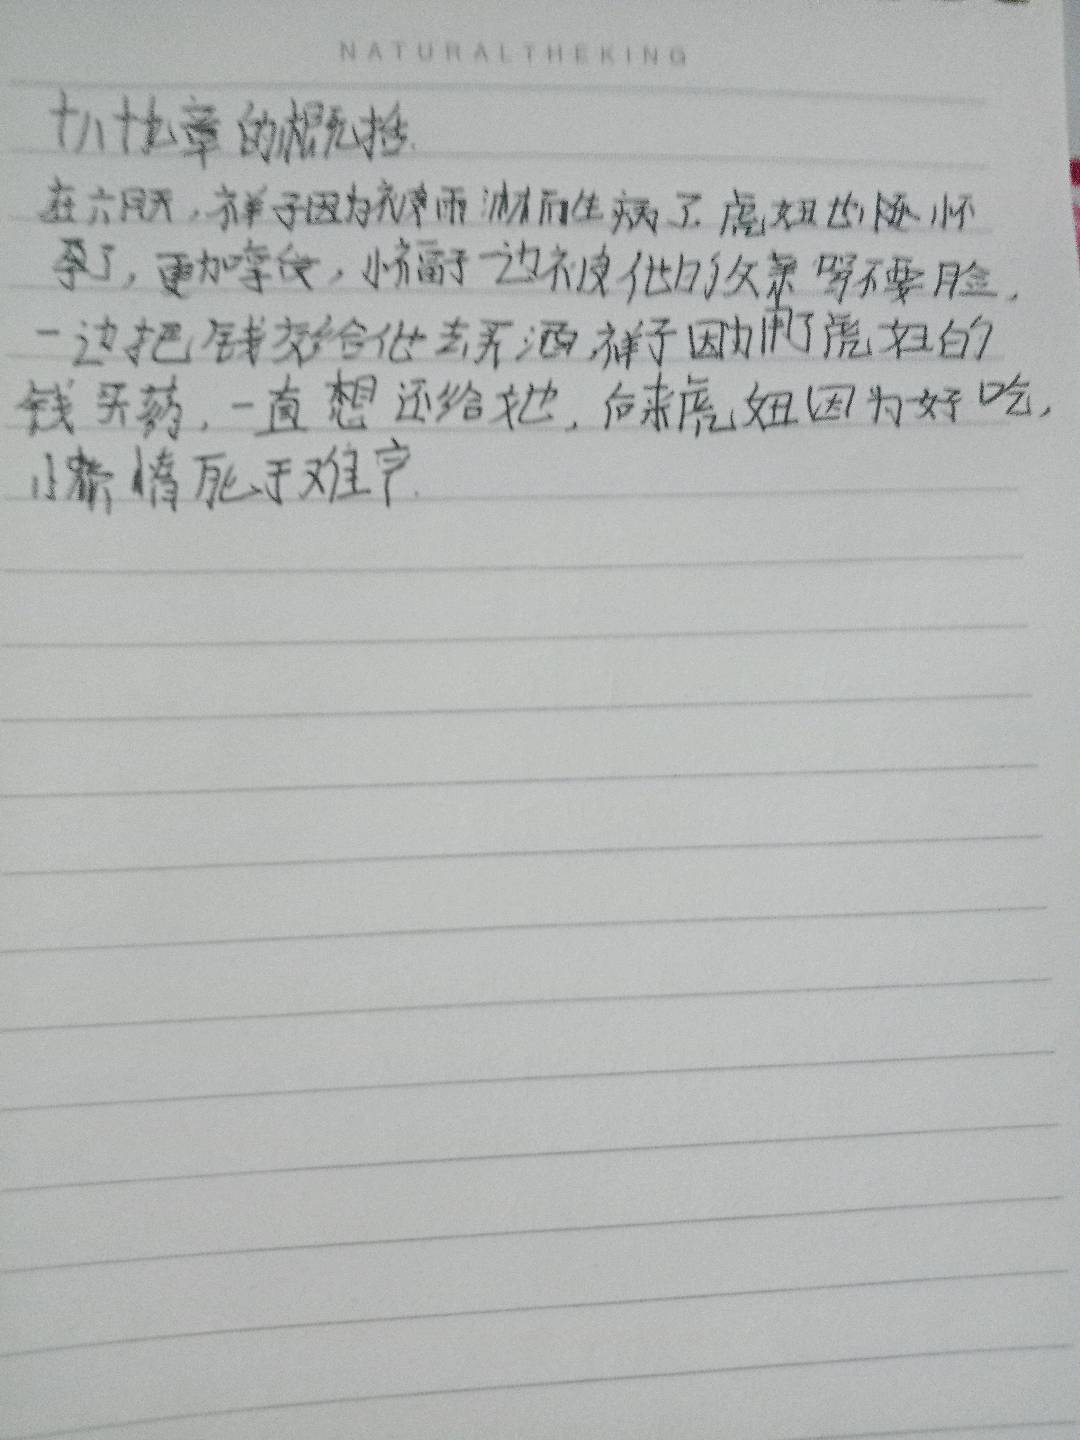 NATURALTHEKING
十八十九章的概括.
在六月天,祥子因为被暴雨淋而生病了.虎妞也随怀
孕了,更加,小福子一边被他的父亲骂不要脸,
一边把钱交给他去买酒,祥子因为用了虎妞的
钱买药,一直想还给她,后来虎妞因为好吃,
小懒惰死于难产.